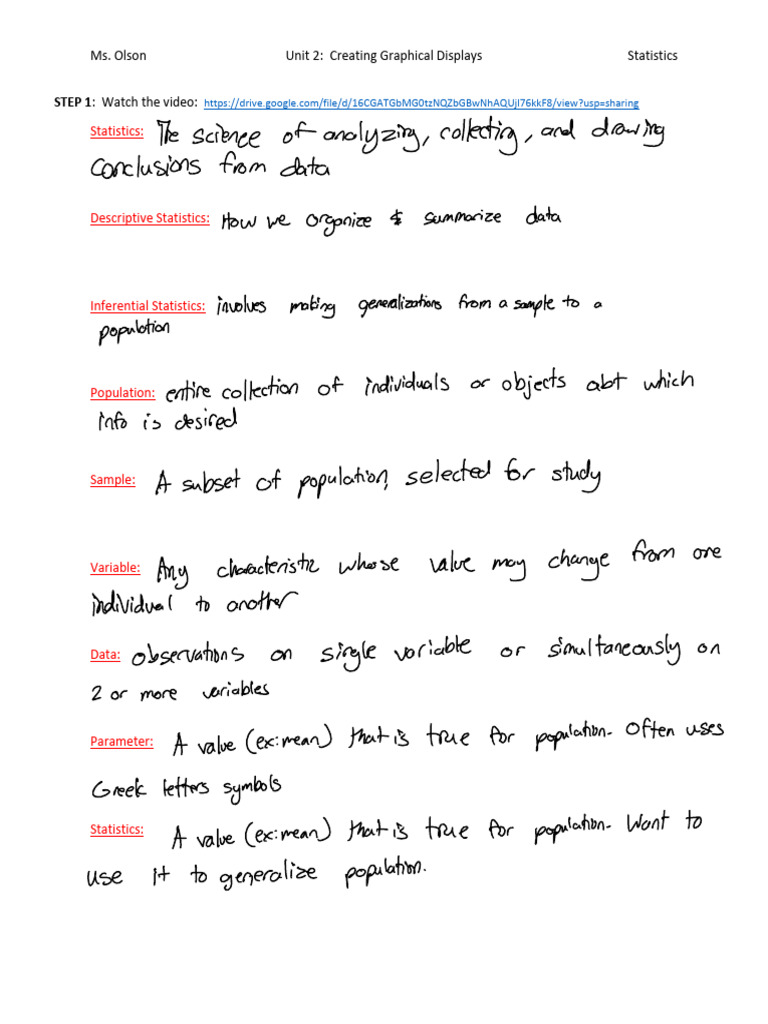 Ms. Olson Unit 2: Creating Graphical Displays Statistics
STEP 1: Watch the video: https://drive.google.com/file/d/16CGATGbMG0tzNQZbGBwNhAQUjI76kkF8/view?usp=sharing
Statistics: The science of analyzing, collecting, and drawing
conclusions from data
Descriptive Statistics: How we organize & summarize data
Inferential Statistics: involves making generalizations from a sample to a
population
Population: entire collection of individuals or objects abt which
info is desired
Sample: A subset of population, selected for study
Variable: Any characteristic whose value may change from one
individual to another
Data: observations on single variable or simultaneously on
2 or more variables
Parameter: A value (ex: mean) that is true for population. Often uses
Greek letters symbols
Statistics: A value (ex: mean) that is true for population. Want to
use it to generalize population.